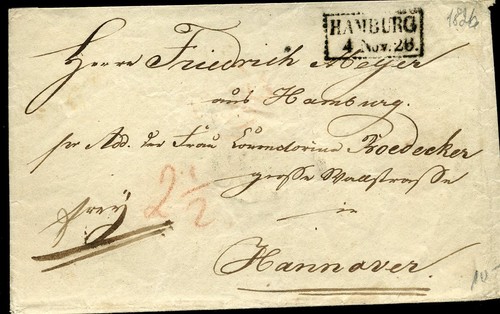 HAMBURG
4 Nov. 26.
1826
Herrn Friedrich Meyer
aus Hamburg.
pr Add. der Frau Conrectorinn Boedecker
grosse Wallstrasse
frey
2 1/2
in
Hannover.